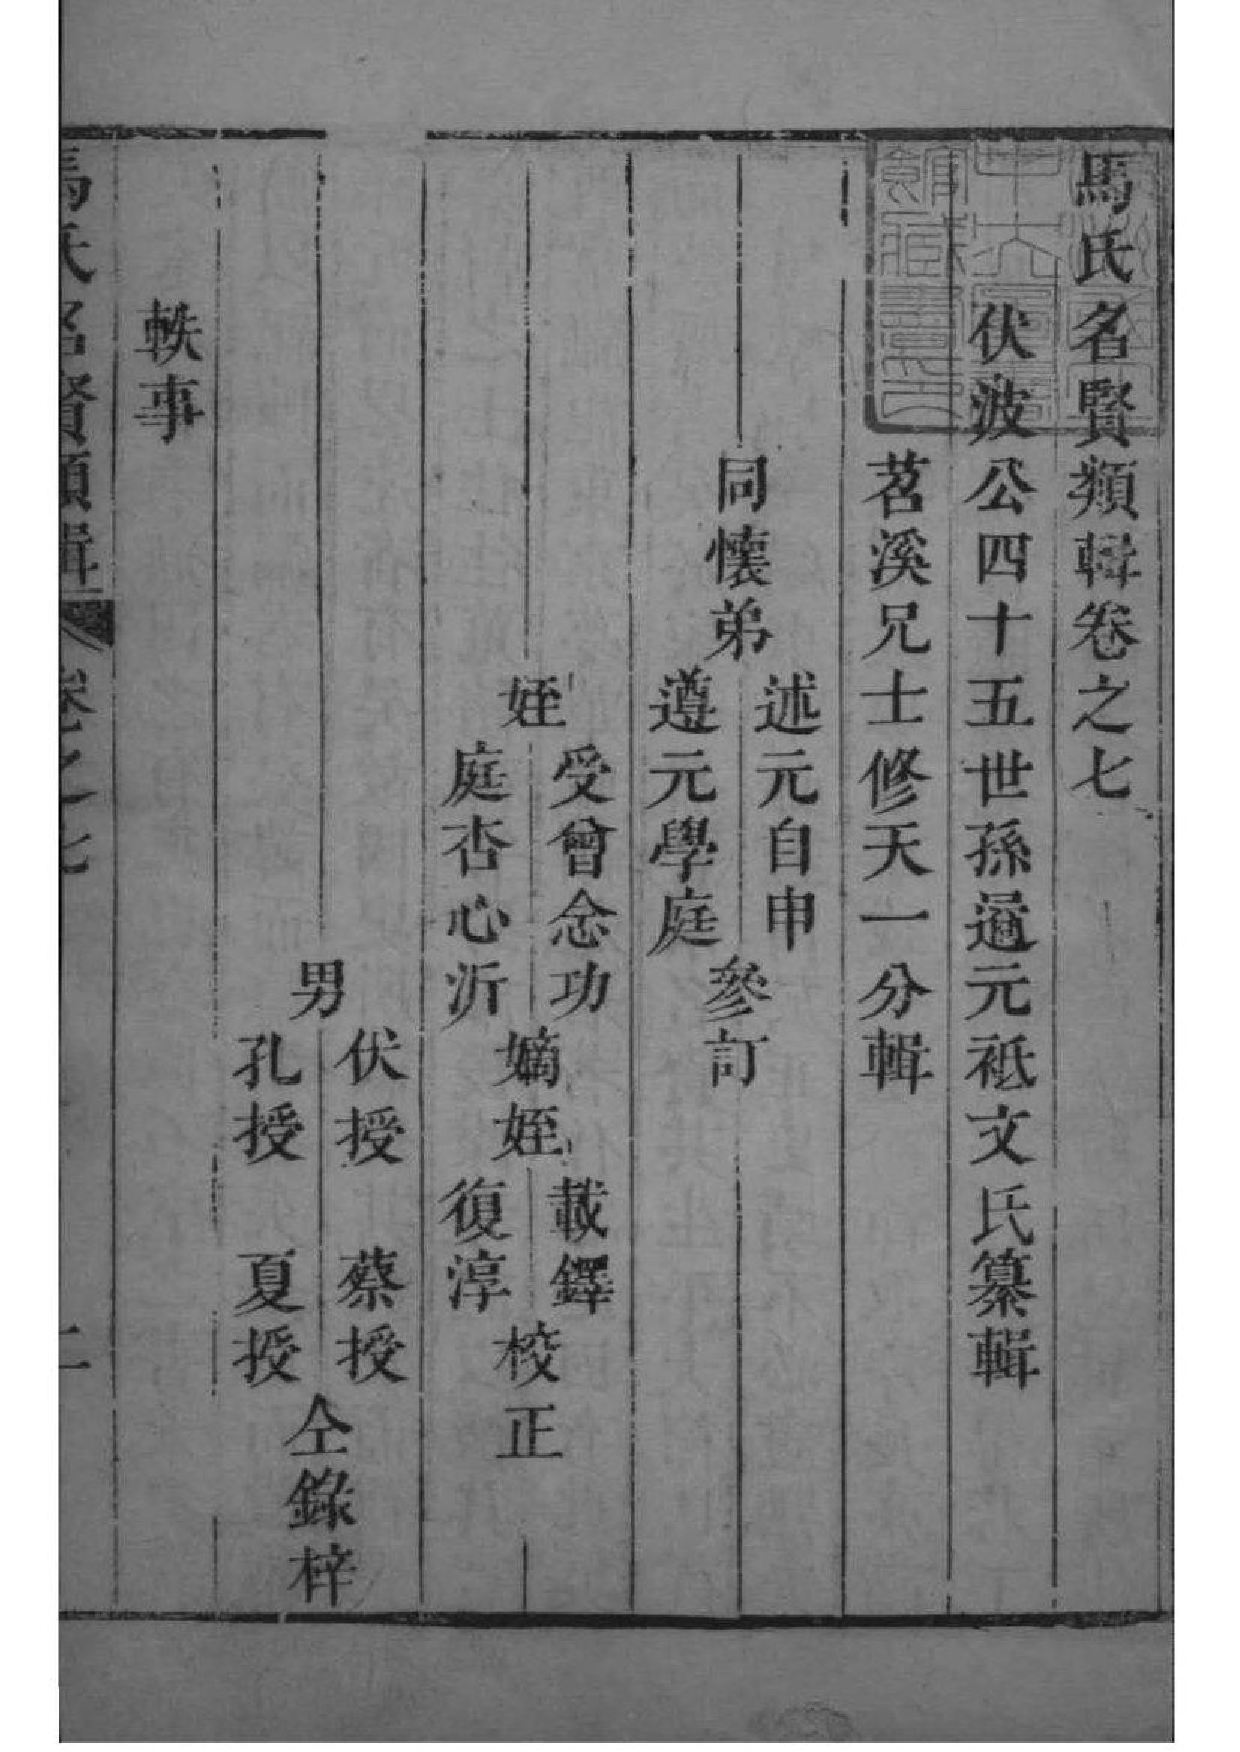 馬氏名賢類輯卷之七
伏波公四十五世孫逌元祗文氏纂輯
苕溪兄士修天一分輯
同懷弟
述元自申
遵元學庭
參訂
姪
受曾念功
庭杏心沂
嫡姪
載鐸
復淳
校正
男
伏授
蔡授
孔授
夏授
仝錄梓
軼事
馬氏名賢類輯
卷之七
一